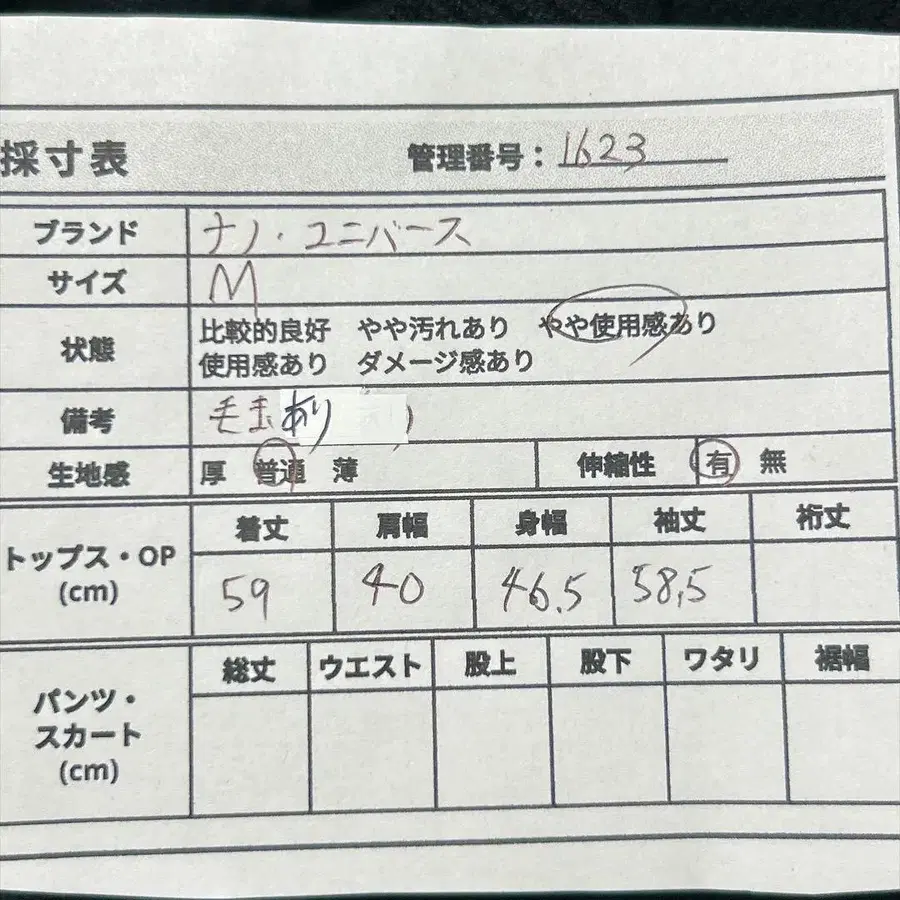 採寸表 管理番号：1623
ブランド ナノ・ユニバース
サイズ M
状態 比較的良好 やや汚れあり やや使用感あり
使用感あり ダメージ感あり
備考 毛玉あり )
生地感 厚 普通 薄 伸縮性 有 無
トップス・OP
(cm)
着丈 肩幅 身幅 袖丈 裄丈
59 40 46.5 58.5
パンツ・
スカート
(cm)
総丈 ウエスト 股上 股下 ワタリ 裾幅